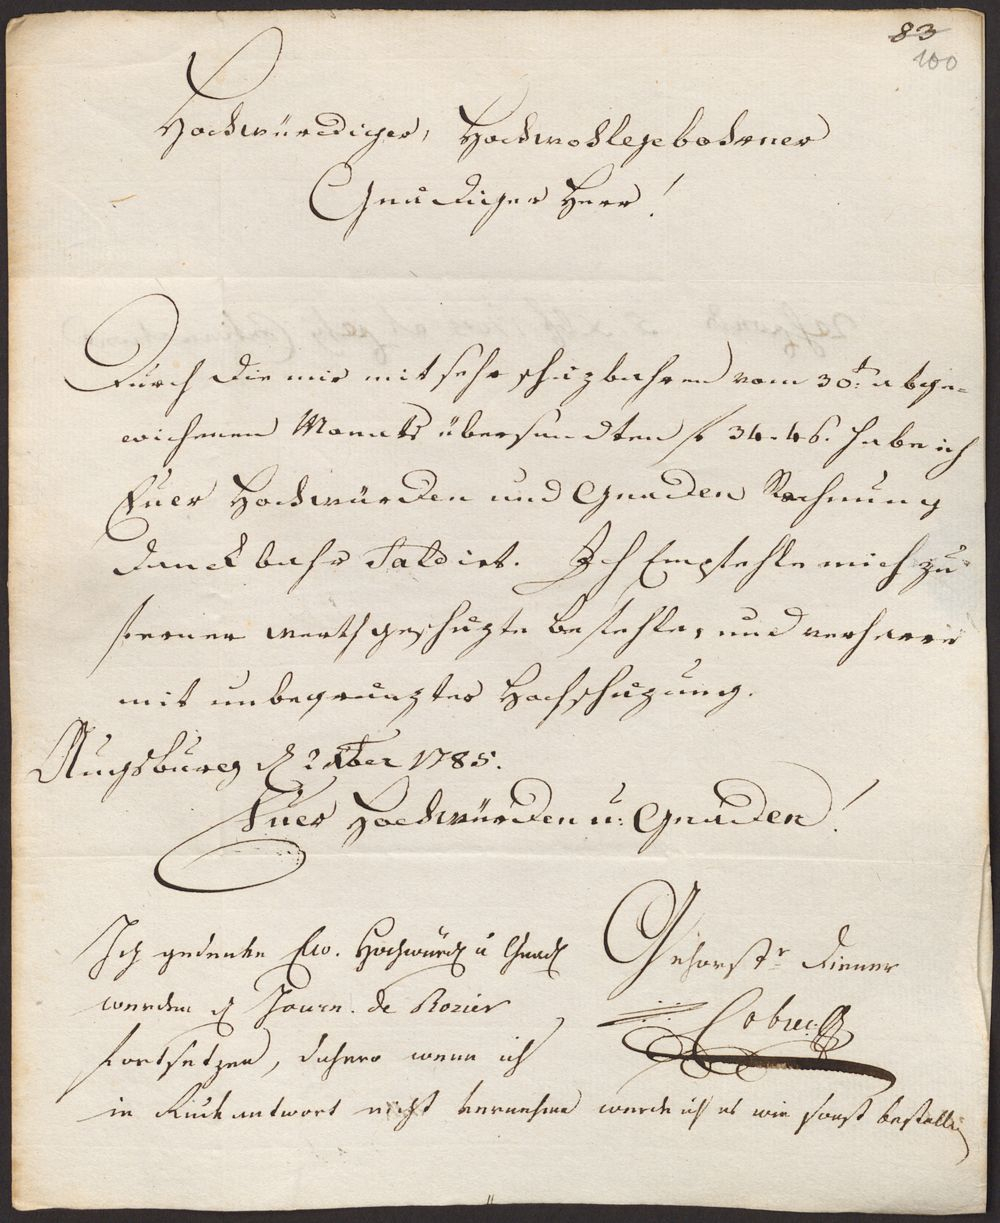 83
100
Hochwürdiger, Hochwohlgebohrner
Gnädiger Herr!
Durch die mir mit sehr schäzbahren vom 30t. abge-
wichenen Monats übersandten f 34.46. habe ich
Euer Hochwürden und Gnaden Rechnung
danckbahr Saldirt. Ich Empfehle mich zu
ferner werthgeschäzte befehle, und verharre
mit unbegränzter Hochschäzung.
Augsburg d 2 Xber 1785.
Euer Hochwürden u: Gnaden!
Ich gedenke Ew. Hochwürd u Gnad
werden d Journ. de Rozier
fortsetzen, dahero wenn ich
in Rückantwort nicht vernehme werde ich es wie sonst bestellen
Gehorstr Diener